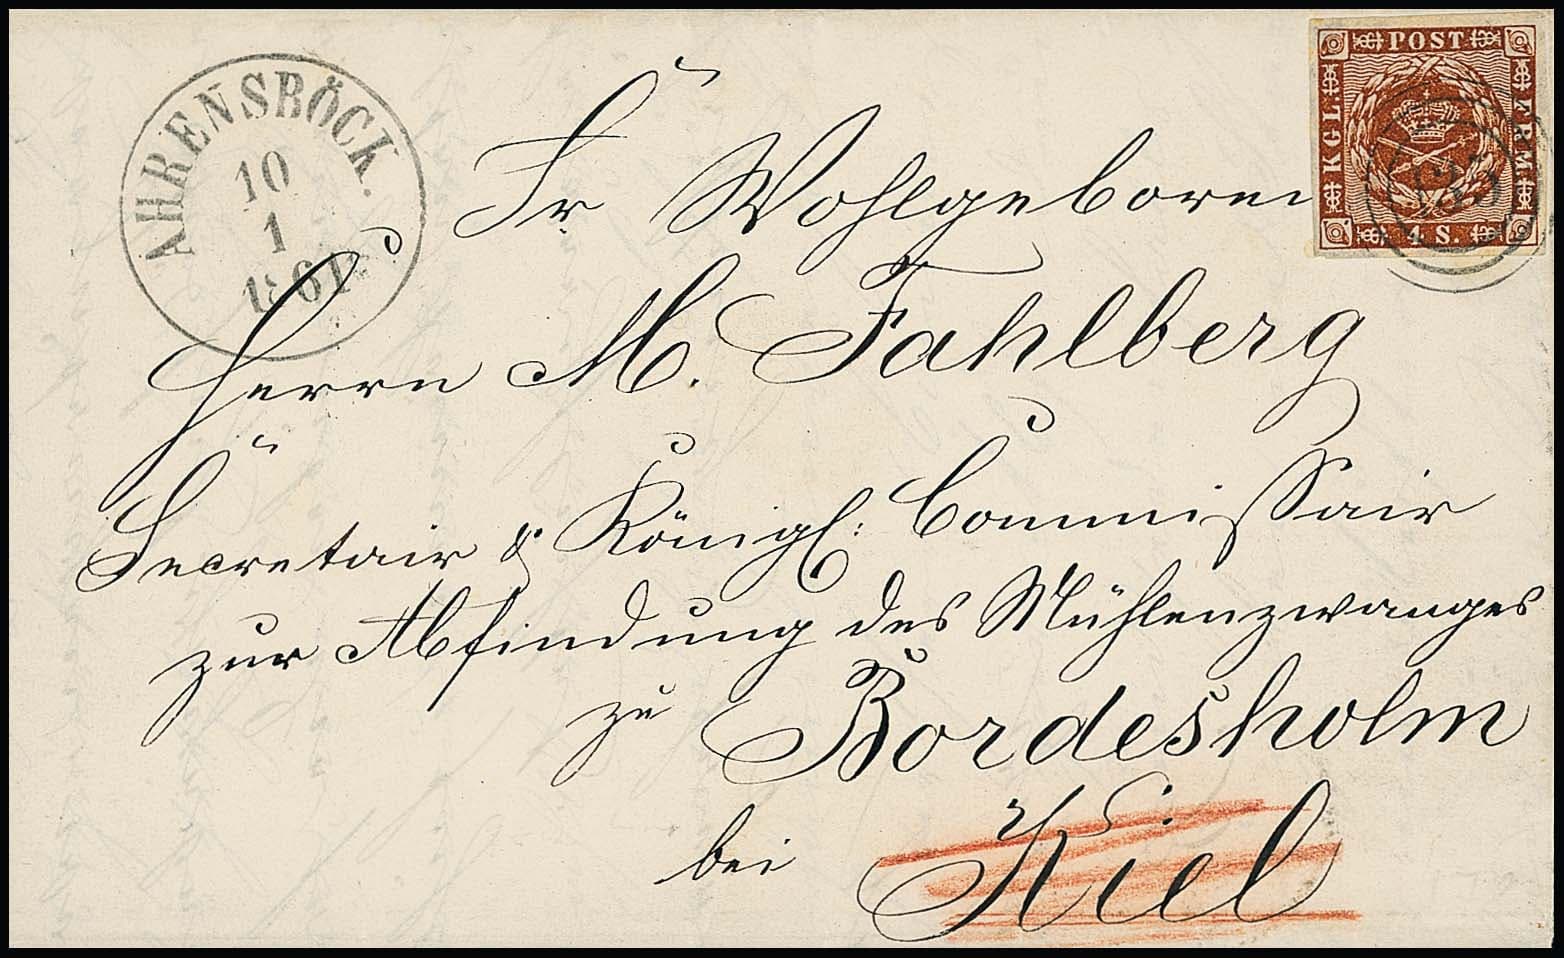 AHRENSBÖCK.
10
1
1861
KGL. POST FRM.
4 S.
Sr Wohlgeboren
Herrn M. Fahlberg
Secretair & Königl: Commissair
zur Abfindung des Mühlenzwanges
zu Bordesholm
bei Kiel